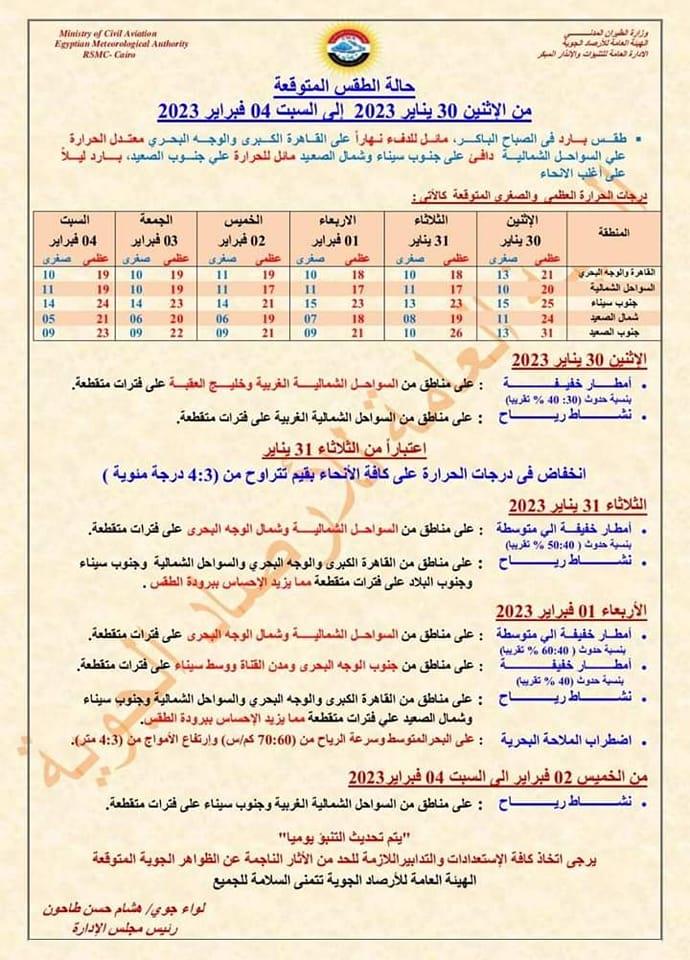 Ministry of Civil Aviation
Egyptian Meteorological Authority
RSMC- Cairo
وزارة الطيران المدنـــي
الهيئة العامة للأرصاد الجوية
الادارة العامة للتنبؤات والانذار المبكر
حالة الطقس المتوقعة
من الإثنين 30 يناير 2023 إلى السبت 04 فبراير 2023
▪ طقـس بـارد فى الصباح الباكـر، مائـل للدفء نهـاراً على القاهرة الكبرى والوجه البحري معتـدل الحرارة
علي السواحـل الشماليـة دافئ على جنوب سيناء وشمال الصعيد مائل للحرارة علي جنـوب الصعيد، بـارد ليـلاً
على أغلب الانحاء
درجات الحرارة العظمى والصغرى المتوقعة كالأتى :
المنطقة الإثنين الثلاثاء الاربعاء الخميس الجمعة السبت
30 يناير 31 يناير 01 فبراير 02 فبراير 03 فبراير 04 فبراير
عظمى صغرى عظمى صغرى عظمى صغرى عظمى صغرى عظمى صغرى عظمى صغرى
القاهرة والوجه البحري 21 13 18 10 18 10 19 11 19 10 19 10
السواحل الشمالية 20 10 17 11 17 11 17 11 19 10 19 11
جنوب سيناء 25 15 23 13 23 15 21 14 23 14 24 14
شمال الصعيد 24 11 19 08 18 07 19 06 20 06 21 05
جنوب الصعيد 31 13 26 10 21 09 21 09 22 09 23 09
الإثنين 30 يناير 2023
• أمطـار خفيفـــة : على مناطق من السواحـل الشماليـة الغربية وخليـج العقبـة على فترات متقطعة.
(بنسبة حدوث (30: 40 % تقريبا)
• نشـــاط ريــــاح : على مناطق من السواحل الشمالية الغربية على فترات متقطعة.
اعتباراً من الثلاثاء 31 يناير
انخفاض فى درجات الحرارة على كافة الأنحاء بقيم تتراوح من (4:3 درجة مئوية )
الثلاثاء 31 يناير 2023
• أمطار خفيفة الي متوسطة : على مناطق من السواحـل الشماليــة وشمال الوجه البحرى على فترات متقطعة.
بنسبة حدوث ( 50:40 % تقريبا)
• نشـــاط ريــــاح : على مناطق من القاهرة الكبرى والوجه البحري والسواحل الشمالية وجنوب سيناء
وجنوب البلاد علي فترات متقطعة مما يزيد الإحساس ببرودة الطقس .
الأربعاء 01 فبراير 2023
• أمطار خفيفة الي متوسطة : على مناطق من السواحـل الشماليــة وشمال الوجه البحرى على فترات متقطعة.
بنسبة حدوث ( 60:40 % تقريبا)
• أمطـار خفيفـــة : على مناطق من جنوب الوجه البحرى ومدن القناة ووسط سيناء على فترات متقطعة.
بنسبة حدوث (40 % تقريبا)
• نشـــاط ريــــاح : على مناطق من القاهرة الكبرى والوجه البحري والسواحل الشمالية وجنوب سيناء
وشمال الصعيد علي فترات متقطعة مما يزيد الإحساس ببرودة الطقس.
• اضطراب الملاحة البحرية : على البحرالمتوسط وسرعة الرياح من (70:60 كم/س) وإرتفاع الأمواج من (4:3 متر).
من الخميس 02 فبراير الى السبت 04 فبراير2023
• نشـــاط ريــــاح : على مناطق من السواحل الشمالية الغربية وجنوب سيناء على فترات متقطعة.
"يتم تحديث التنبؤ يوميا"
يرجى اتخاذ كافة الإستعدادات والتدابيراللازمة للحد من الأثار الناجمة عن الظواهر الجوية المتوقعة
الهيئة العامة للأرصاد الجوية تتمنى السلامة للجميع
لواء جوي/ هشام حسن طاحون
رئيس مجلس الإدارة
الهيئة العامة للأرصاد الجوية